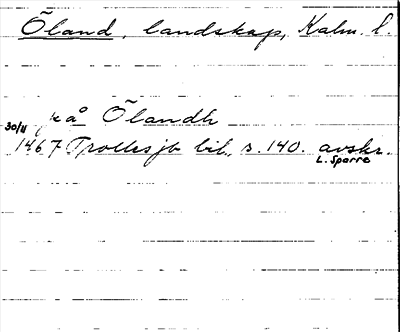 Öland, landskap, Kalm. l.
på Ölandh
30/11
1467 Trolles jb bil., s. 140. avskr.
L. Sparre